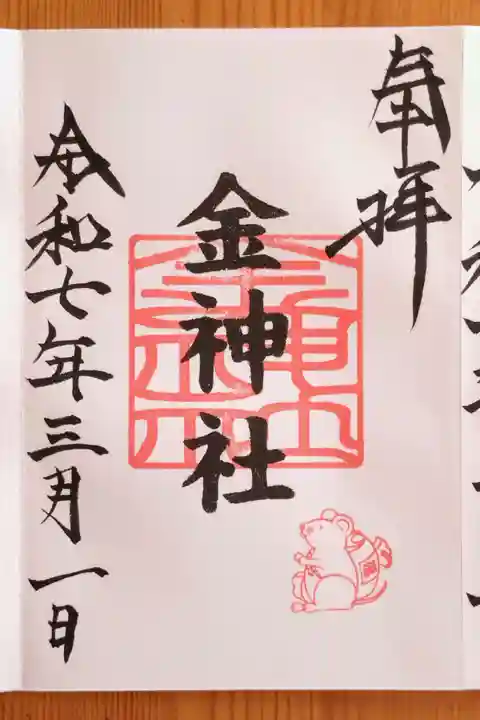 奉拝
金神社
令和七年三月一日